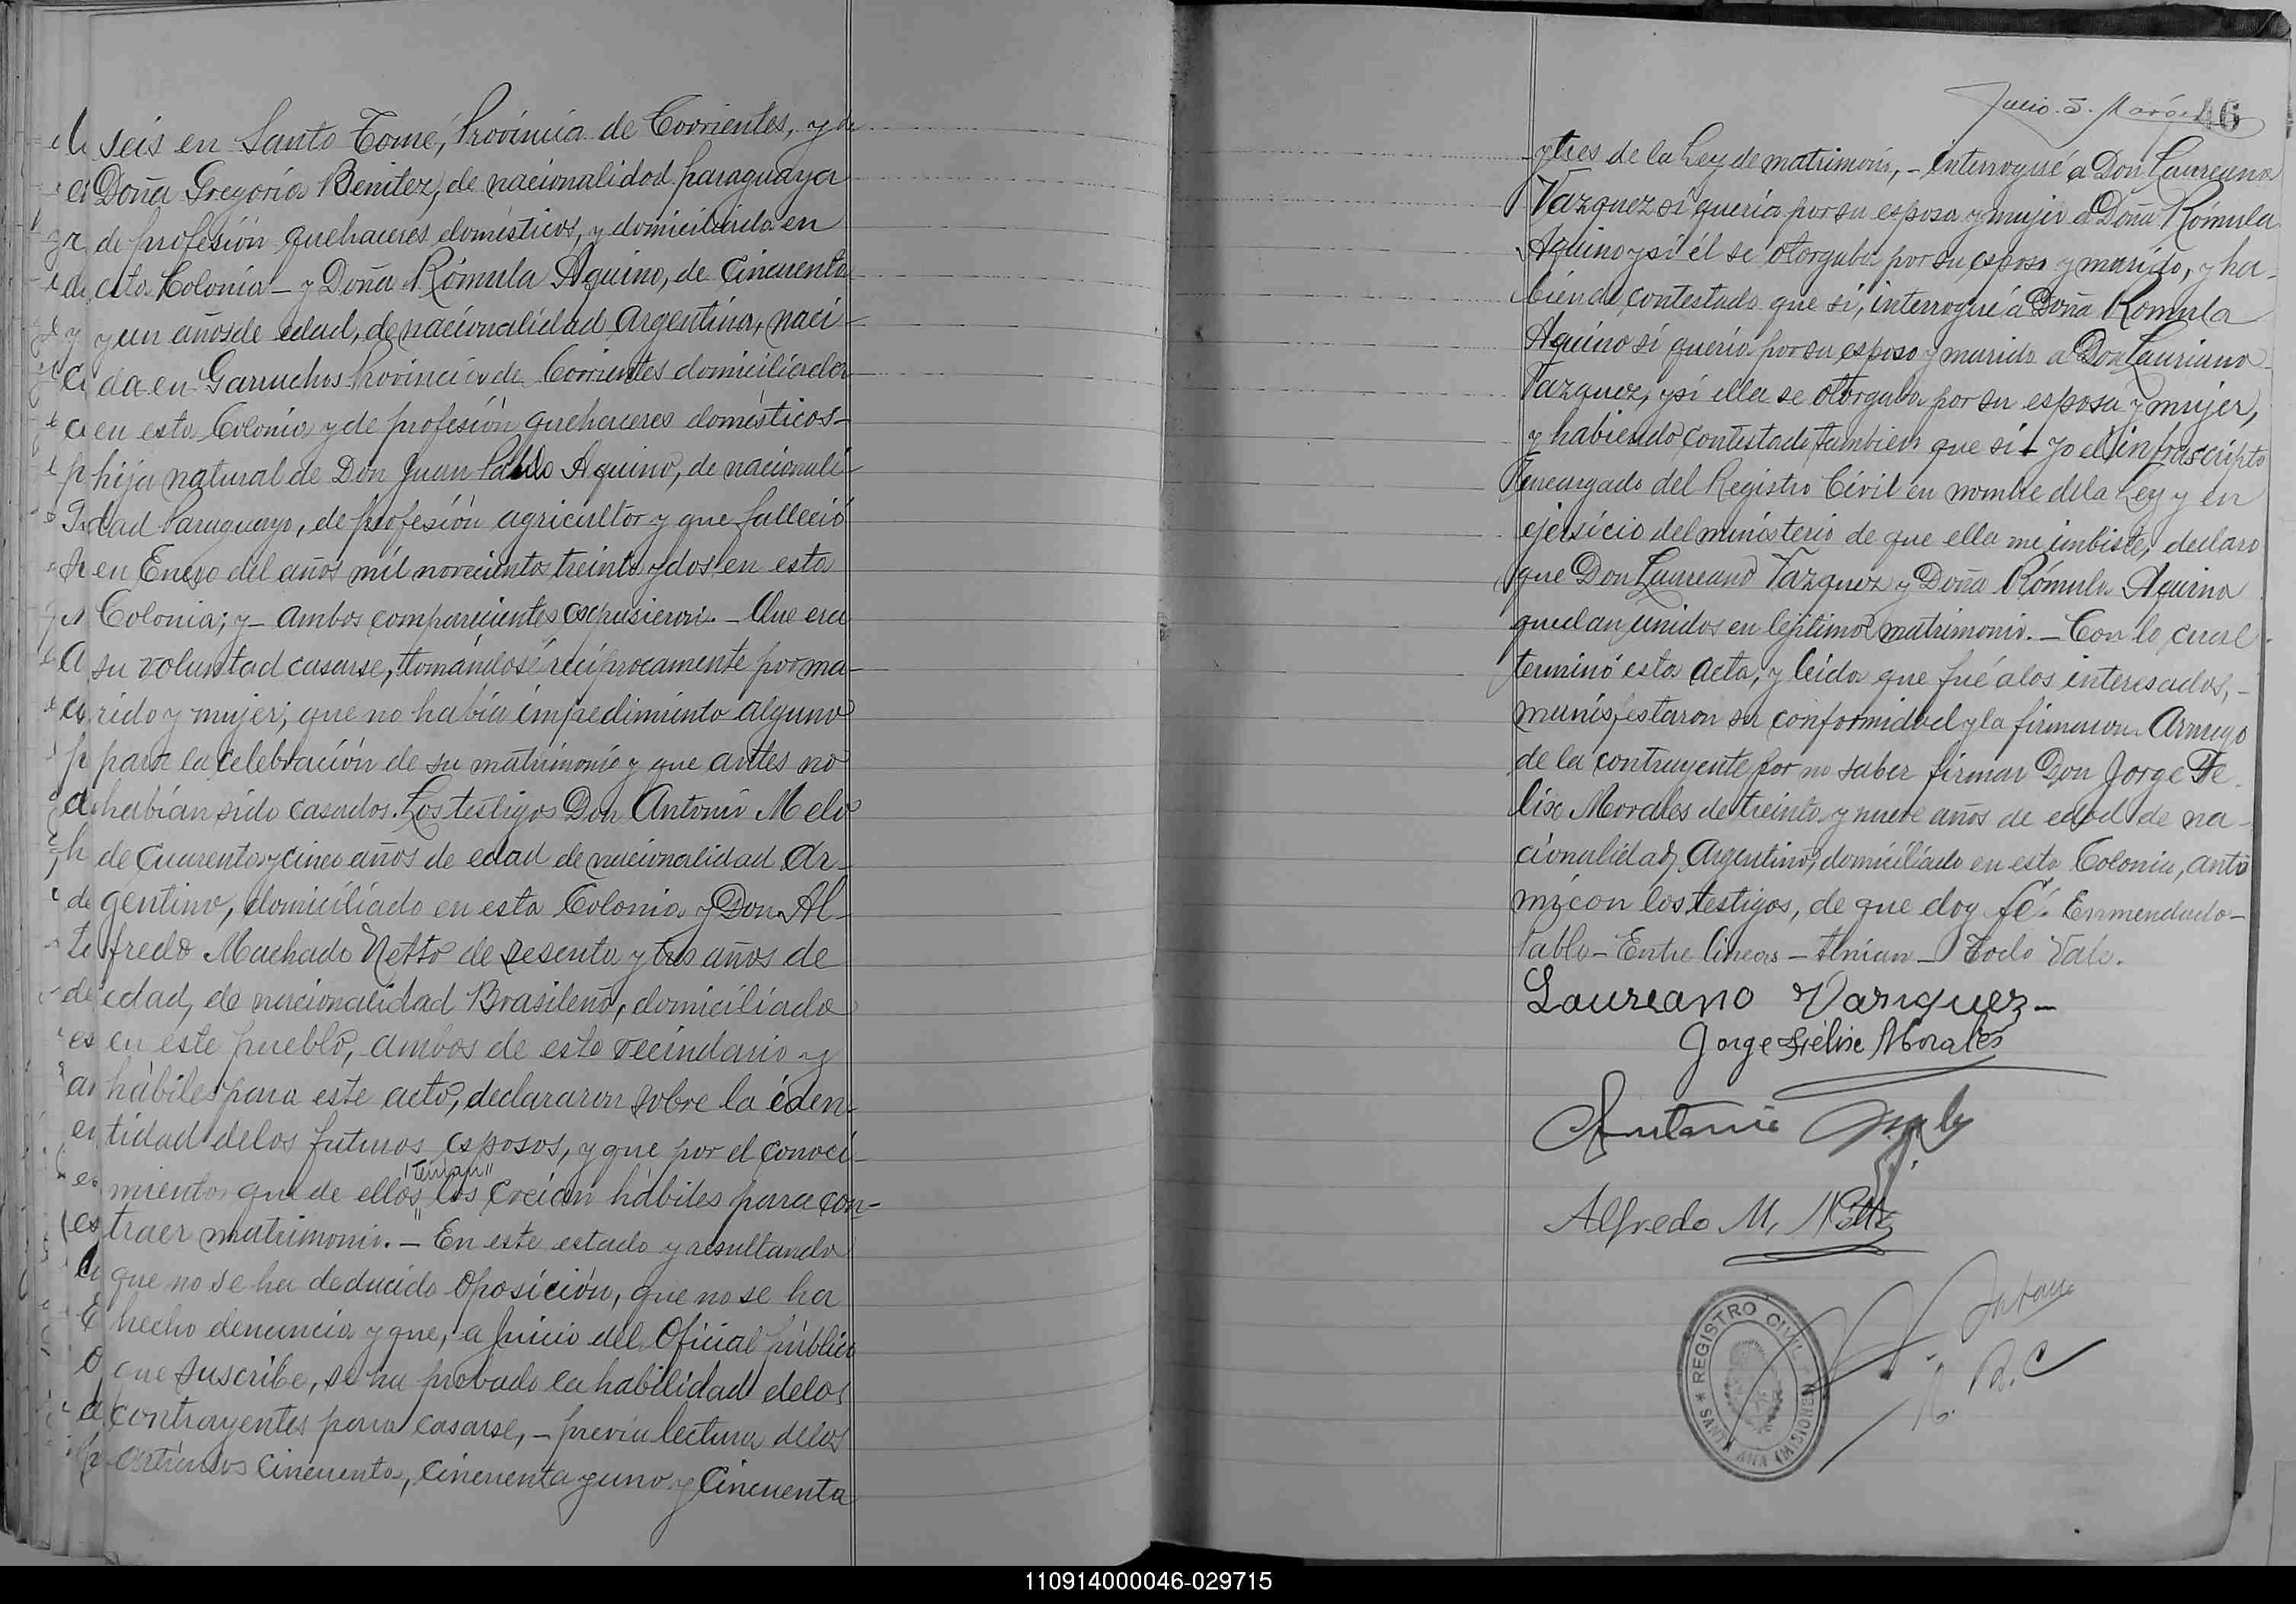 seis en Santo Tomé, Provincia de Corrientes, y de
Doña Gregoria Benitez, de nacionalidad paraguaya
de profesión quehaceres domésticos, y domiciliada en
esta Colonia - y Doña Rómula Aquino, de Cincuenta
y un años de edad, de nacionalidad Argentina, naci-
da en Garruchos Provincia de Corrientes domiciliada
en esta Colonia y de profesión quehaceres domésticos-
hija natural de Don Juan Pablo Aquino, de nacionali-
dad Paraguayo, de profesión agricultor y que falleció
en Enero del años mil novecientos treinta y dos en esta
Colonia; y - ambos comparecientes expusieron. - Que era
su voluntad casarse, tomándose recíprocamente por ma-
rido y mujer; que no había impedimento alguno
para la celebración de su matrimonio y que antes no
habían sido casados. Los testigos Don Antonio Melo
de Cuarenta y cinco años de edad de nacionalidad Ar-
gentino, domiciliado en esta Colonia y Don Al-
fredo Machado Netto de sesenta y tres años de
edad, de nacionalidad Brasileño, domiciliado
en este pueblo, ambos de este vecindario y
hábiles para este acto, declararon sobre la iden-
tidad de los futuros esposos, y que por el conoci-
"Tenian"
miento que de ellos los creían hábiles para con-
traer matrimonio. - En este estado y resultando
que no se ha deducido oposición, que no se ha
hecho denuncia y que, a juicio del Oficial público
que suscribe, se ha probado la habilidad de los
contrayentes para casarse, - previa lectura de los
artículos Cincuenta, Cincuenta y uno y Cincuenta
46
y tres de la Ley de matrimonio, - interrogué a Don Laureano
Vazquez si quería por su esposa y mujer a Doña Rómula
Aquino y si él se otorgaba por su esposo y marido, y ha-
biendo contestado que sí, interrogué á Doña Romula
Aquino si quería por su esposo y marido a Don Lauriano
Vazquez, y si ella se otorgaba por su esposa y mujer,
y habiendo contestado tambien que si - yo el infrascripto
Encargado del Registro Civil en nombre de la Ley y en
ejersicio del ministerio de que ella me imbiste, declaro
que Don Laureano Vazquez y Doña Rómula Aquino
quedan unidos en lejitimo matrimonio. - Con lo cual
terminó esta acta, y leida que fué a los interesados, -
manisfestaron su conformidad y la firmaron. Arruego
de la contrayente por no saber firmar Don Jorge Fe
lix Morales de treinta y nueve años de edad de na-
cionalidad Argentino, domiciliado en esta Colonia, ante
mi y con los testigos, de que doy fé. Enmendado-
Pablo - Entre lineas - tenian - Todo Vale.
Laureano Vazquez -
Jorge Félix Morales
Antonio Melo
Alfredo M. Netto
REGISTRO CIVIL
SANTA ANA (MISIONES)
E. R. C
110914000046-029715